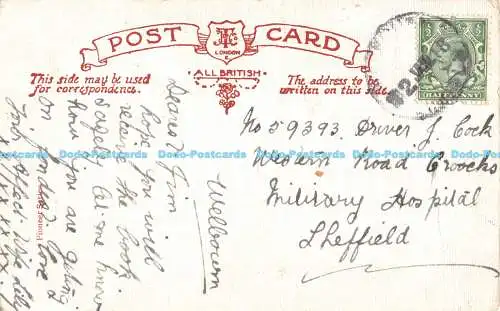 POST CARD
LONDON
ALL BRITISH
This side may be used
for correspondence.
The address to be
written on this side.
HALFPENNY
Welbourn
Dearest Jim
hope you will
receive the book
safely
you are going
on fondest love
Wife Lily
X X X X X X
No 59393. Driver J. Cock
Western Road Crooks
Military Hospital
Sheffield
Pioneer
Dodo-Postcards Dodo-Postcards Dodo-Postcards Dodo-Postcards